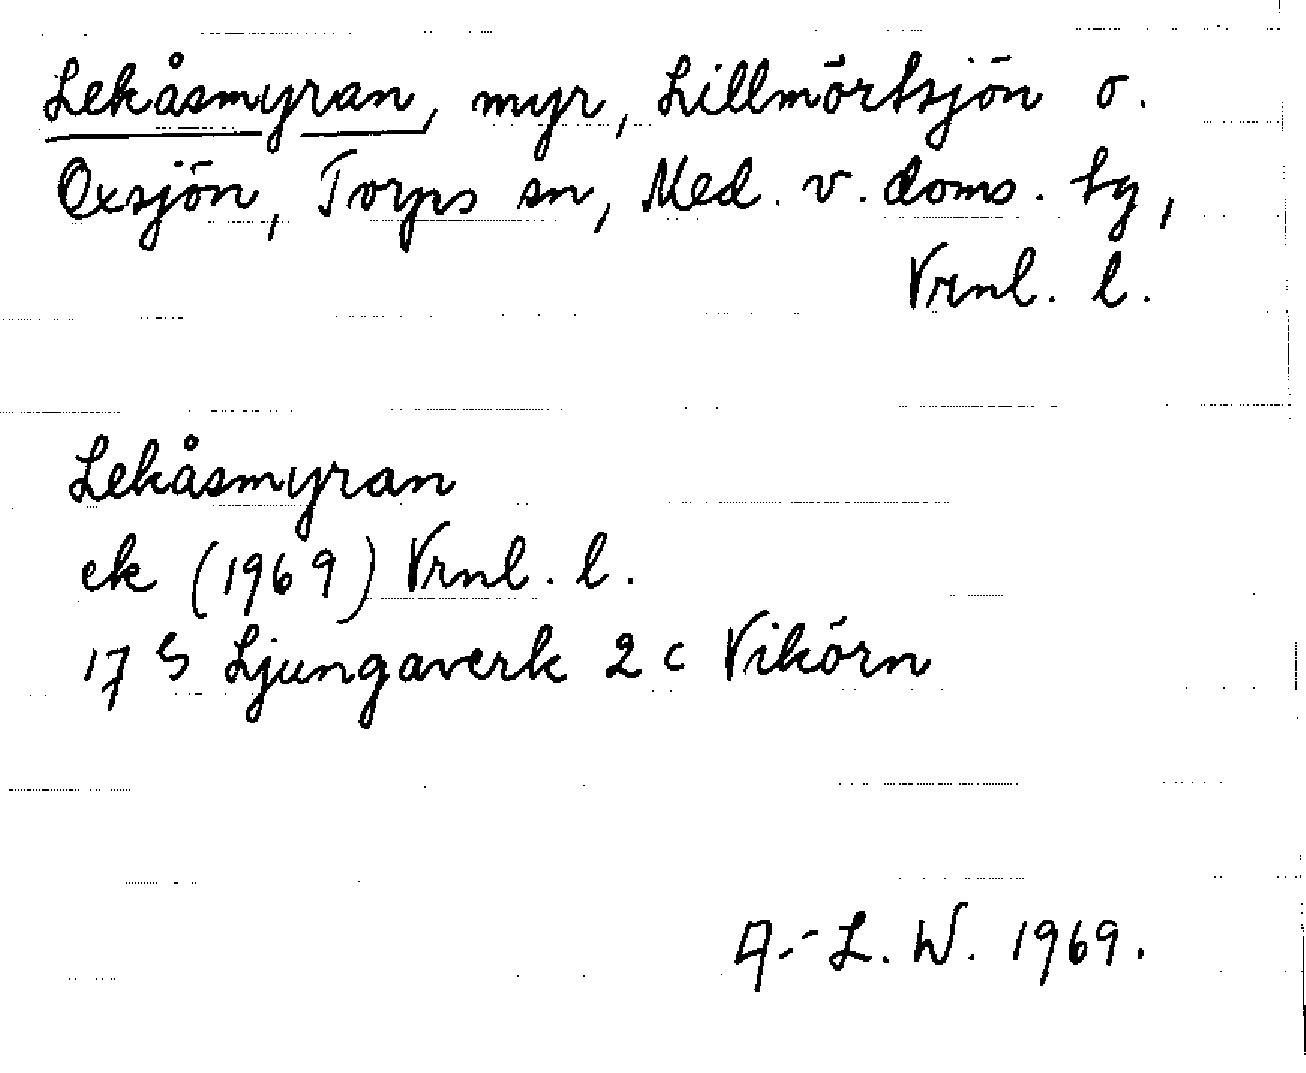 Lekåsmyran, myr, Lillmörtsjön o.
Oxsjön, Torps sn, Med. v. doms. tg,
Vrnl. l.
Lekåsmyran
ek (1969) Vrnl. l.
17 G Ljungaverk 2 c Vikörn
A.-L. W. 1969.